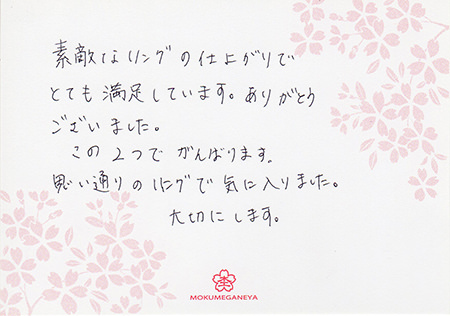 素敵なリングの仕上がりで
とても満足しています。ありがとう
ございました。
この2つでがんばります。
思い通りのリングで気に入りました。
大切にします。
MOKUMEGANEYA